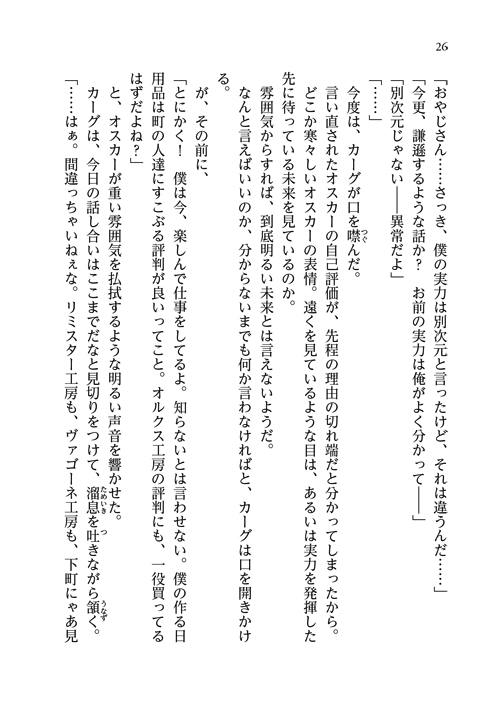 26
「おやじさん……さっき、僕の実力は別次元と言ったけど、それは違うんだ……」
「今更、謙遜するような話か？　お前の実力は俺がよく分かって――」
「別次元じゃない――異常だよ」
「……」
今度は、カーグが口を噤んだ。
言い直されたオスカーの自己評価が、先程の理由の切れ端だと分かってしまったから。
どこか寒々しいオスカーの表情。遠くを見ているような目は、あるいは実力を発揮した
先に待っている未来を見ているのか。
雰囲気からすれば、到底明るい未来とは言えないようだ。
なんと言えばいいのか、分からないまでも何か言わなければと、カーグは口を開きかけ
る。
が、その前に、
「とにかく！　僕は今、楽しんで仕事をしてるよ。知らないとは言わせない。僕の作る日
用品は町の人達にすこぶる評判が良いってこと。オルクス工房の評判にも、一役買ってる
はずだよね？」
と、オスカーが重い雰囲気を払拭するような明るい声音を響かせた。
カーグは、今日の話し合いはここまでだなと見切りをつけて、溜息を吐きながら頷く。
「……はぁ。間違っちゃいねぇな。リミスター工房も、ヴァゴーネ工房も、下町にゃあ見